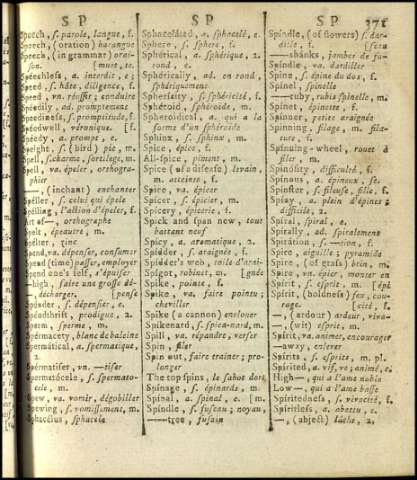 S P
S P
S P
371
Speech, s. parole, langue, f.
Speech, (oration) harangue
Speech, (in grammar) orai-
son. [muet, te.
Speechless, a. interdit, e;
Speed, s. hâte, diligence, f.
Speed, vn. réussir, conduire
Speedily, ad. promptement
Speediness, s. promptitude, f.
Speedwell, véronique. [f.
Speedy, a. prompt, e.
Speight, s. (bird) pie, m.
Spell, s. charme, sortilege, m.
Spell, va. épeler, orthogra-
phier
—, (inchant) enchanter
Speller, s. celui qui épele
Spelling, l'action d'épeler, f.
Art of—, orthographe
Spelt, épeautre, m.
Spelter, zinc
Spend, va. dépenser, consumer
Spend (time) passer, employer
Spend one's self, s'épuiser
—high, faire une grosse dé-
—, décharger. [pense
Spender, s. dépensier, e.
Spendthrift, prodigue, 2.
Sperm, sperme, m.
Spermacety, blanc de baleine
Spermatical, a. spermatique,
2.
Spermatise, vn. —tiser
Spermatocele, s. spermato-
cele, m.
Spew, va. vomir, dégobiller
Spewing, s. vomissement, m.
Sphacelus, sphacele
Sphacelated, a. sphacelé, e.
Sphere, s. sphere, f.
Spherical, a. sphérique, 2.
e, f.
Spherically, ad. en rond,
sphériquement
Sphericity, s. sphéricité, f.
Spheroid, sphéroide, m.
Spheroidical, a. qui a la
forme d'un sphéroide
Sphinx, s. sphinx, m.
Spice, épice, f.
All-spice, piment, m.
Spice (of a disease) levain,
m. atteinte, f.
Spice, va. épicer
Spicer, s. épicier, m.
Spicery, épicerie, f.
Spick and span new, tout
battant neuf
Spicy, a. aromatique, 2.
Spider, s. araignée, f.
Spider's web, toile d'arai-
Spigot, robinet, m. [gnée
Spike, pointe, f.
Spike, va. faire pointu;
cheviller
Spike (a cannon) enclouer
Spikenard, s. spica-nard, m.
Spill, va. répandre, verser
Spin, filer
Spin out, faire traîner; pro-
longer
The top spins, le sabot dort
Spinage, s. épinards, m.
Spinal, a. spinal, e. [m.
Spindle, s. fuseau; noyau,
—tree, fusain
Spindle, (of flowers) s. dar-
dille, f. [seau
—shanks, jambes de fu-
Spindle, va. dardiller
Spine, s. épine du dos, f.
Spinel, spinelle
—ruby, rubis spinelle, m.
Spinet, épinette, f.
Spinner, petite araignée
Spinning, filage, m. fila-
ture, f.
Spinning-wheel, rouet à
filer, m.
Spinosity, difficulté, f.
Spinous, a. épineux, se.
Spinster, s. fileuse, fille, f.
Spiny, a. plein d'épines;
difficile, 2.
Spiral, spiral, e.
Spirally, ad. spiralement
Spiration, s. —tion, f.
Spire, aiguille; pyramide
Spire, (of grass) brin, m.
Spire, va. épier, monter en
Spirit, s. esprit, m. [épi
Spirit, (boldness) feu, cou-
rage. [cité, f.
—, (ardour) ardeur, viva-
—, (wit) esprit, m.
Spirit, va. animer, encourager
—away, enlever
Spirits, s. esprits, m. pl.
Spirited, a. vif, ve; animé, e.
High—, qui a l'ame noble
Low—, qui a l'ame basse
Spiritedness, s. vivacité, f.
Spiritless, a. abattu, e.
—, (abject) lâche, 2.